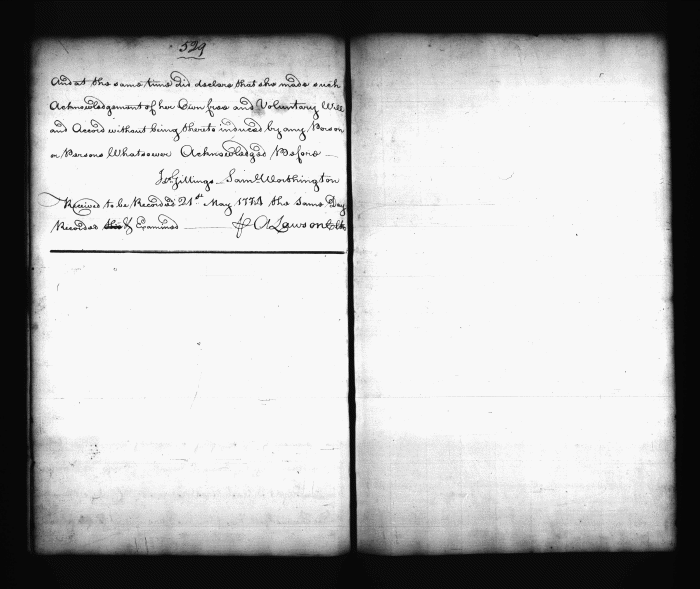 529
and at the same time did declare that she made such
Acknowledgement of her Own free and Voluntary Will
and Accord without being thereto induced by any Person
or Persons Whatsoever Acknowledged Before
Js. Gittings Saml Worthington
Received to be Recorded 21st May 1774 the same Day
Recorded & Examined
A Lawson Clk